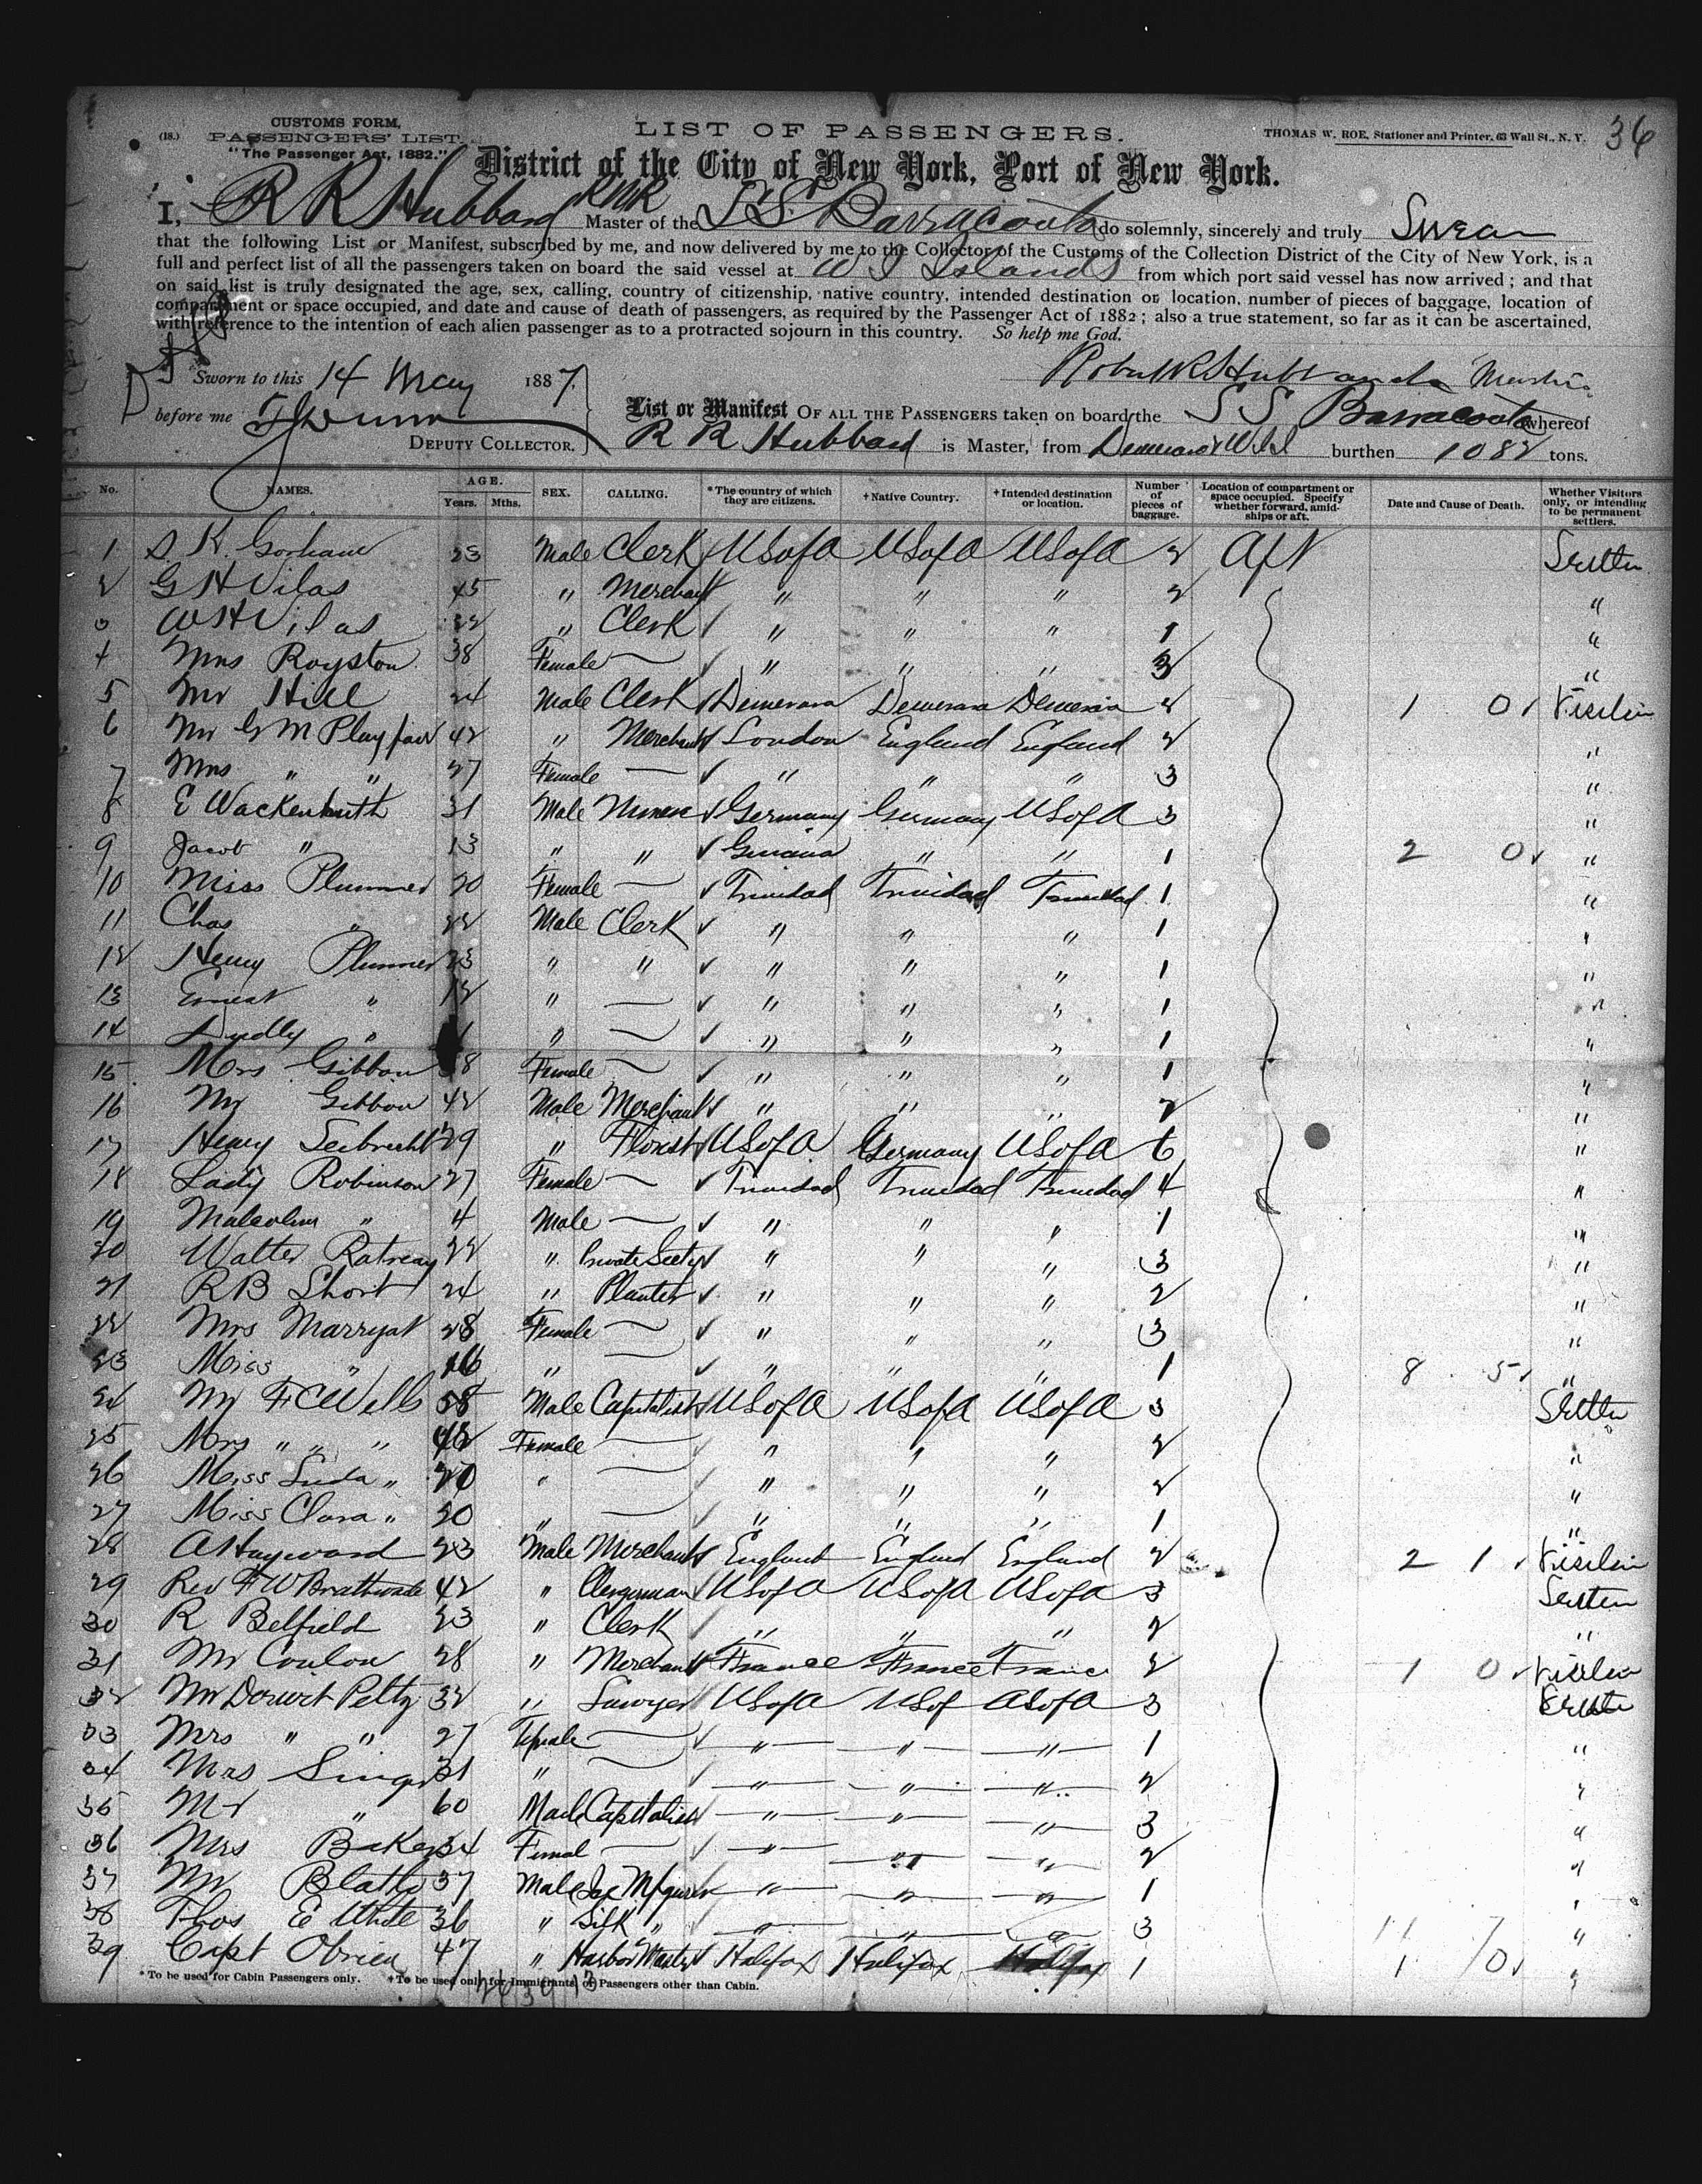 36
(18.)
CUSTOMS FORM,
PASSENGERS' LIST.
"The Passenger Act, 1882."
LIST OF PASSENGERS.
THOMAS W. ROE, Stationer and Printer, 63 Wall St., N. Y.
District of the City of New York, Port of New York.
I, R R Hubbard RNR Master of the S.S. Barracouta do solemnly, sincerely and truly Swear
that the following List or Manifest, subscribed by me, and now delivered by me to the Collector of the Customs of the Collection District of the City of New York, is a
full and perfect list of all the passengers taken on board the said vessel at W I Islands from which port said vessel has now arrived ; and that
on said list is truly designated the age, sex, calling, country of citizenship, native country, intended destination or location, number of pieces of baggage, location of
compartment or space occupied, and date and cause of death of passengers, as required by the Passenger Act of 1882 ; also a true statement, so far as it can be ascertained,
with reference to the intention of each alien passenger as to a protracted sojourn in this country. So help me God.
Sworn to this 14 May 1887.
before me
DEPUTY COLLECTOR.
List or Manifest OF ALL THE PASSENGERS taken on board the S S Barracouta whereof
R R Hubbard is Master, from Demerara & W I burthen 1082 tons.
No. NAMES. AGE. Years. Mths. SEX. CALLING. *The country of which they are citizens. +Native Country. +Intended destination or location. Number of pieces of baggage. Location of compartment or space occupied. Specify whether forward, amidships or aft. Date and Cause of Death. Whether Visitors only, or intending to be permanent settlers.
1 S K. Gorham 23 Male Clerk USofA USofA USofA 2 Aft Settler
2 G H Vilas 45 " Merchant " " " 2 "
3 W H Vilas 22 " Clerk " " " 1 "
4 Mrs Royston 38 Female — " " " 3 "
5 Mr Hill 24 Male Clerk Demerara Demerara Demerara 2 1 0
6 Mr G M Playfair 42 " Merchant London England England 2 "
7 Mrs " " 27 Female — " " " 3 "
8 E Wackenhuth 31 Male Germany Germany USofA 3 "
9 Jacob " 13 " " " " 1 2 0 "
10 Miss Plummer 20 Female — Trinidad Trinidad Trinidad 1 "
11 Chas " 22 Male Clerk " " " 1 "
12 Henry Plummer 23 " " " " " 1 "
13 Ernest " 12 " — " " " 1 "
14 Dudly " " — " " " 1 "
15 Mrs Gibbon Female — " " " 1 "
16 Mr Gibbon 42 Male Merchant " " " 2 "
17 Henry Seibrecht 29 " Florist USofA Germany USofA 6 "
18 Lady Robinson 27 Female — Trinidad Trinidad Trinidad 4 "
19 Malcolm " 4 Male — " " " 1 "
20 Walter 22 " Private Secty " " " 3 "
21 R B Short 24 " Planter " " " 2 "
22 Mrs Marryat 28 Female — " " " 3 "
23 Miss " 16 " — " " " 1 8 5 "
24 Mr F C Wells 58 Male Capitalist USofA USofA USofA 3 Settler
25 Mrs " " " 42 Female — " " " 2 "
26 Miss " 20 " — " " " 2 "
27 Miss Clara " 20 " — " " " 1 "
28 A Hayward 23 Male Merchant England England England 2 2 1
29 Rev F W Brathwade 42 " Clergyman USofA USofA USofA 3
30 R Belfield 23 " Clerk " " " 2 "
31 Mr Coulon 28 " Merchant France France France 2 1 0
32 Mr Dorwit Peltz 32 " Lawyer USofA USof ASofA 3
33 Mrs " " 27 Female — " " " 1 "
34 Mrs Singer 31 " — " " " 2 "
35 Mr " 60 Male Capitalist " " " 3 "
36 Mrs Baker 34 Femal — " " " 2 "
37 Mr 37 Male " " " 1 "
38 Thos E White 36 " Silk " " " " 3 11 7 "
39 Capt Obrien 47 " Harbor Master Halifax Halifax Halifax 1 1 0 "
* To be used for Cabin Passengers only. +To be used only for Immigrants, or Passengers other than Cabin.